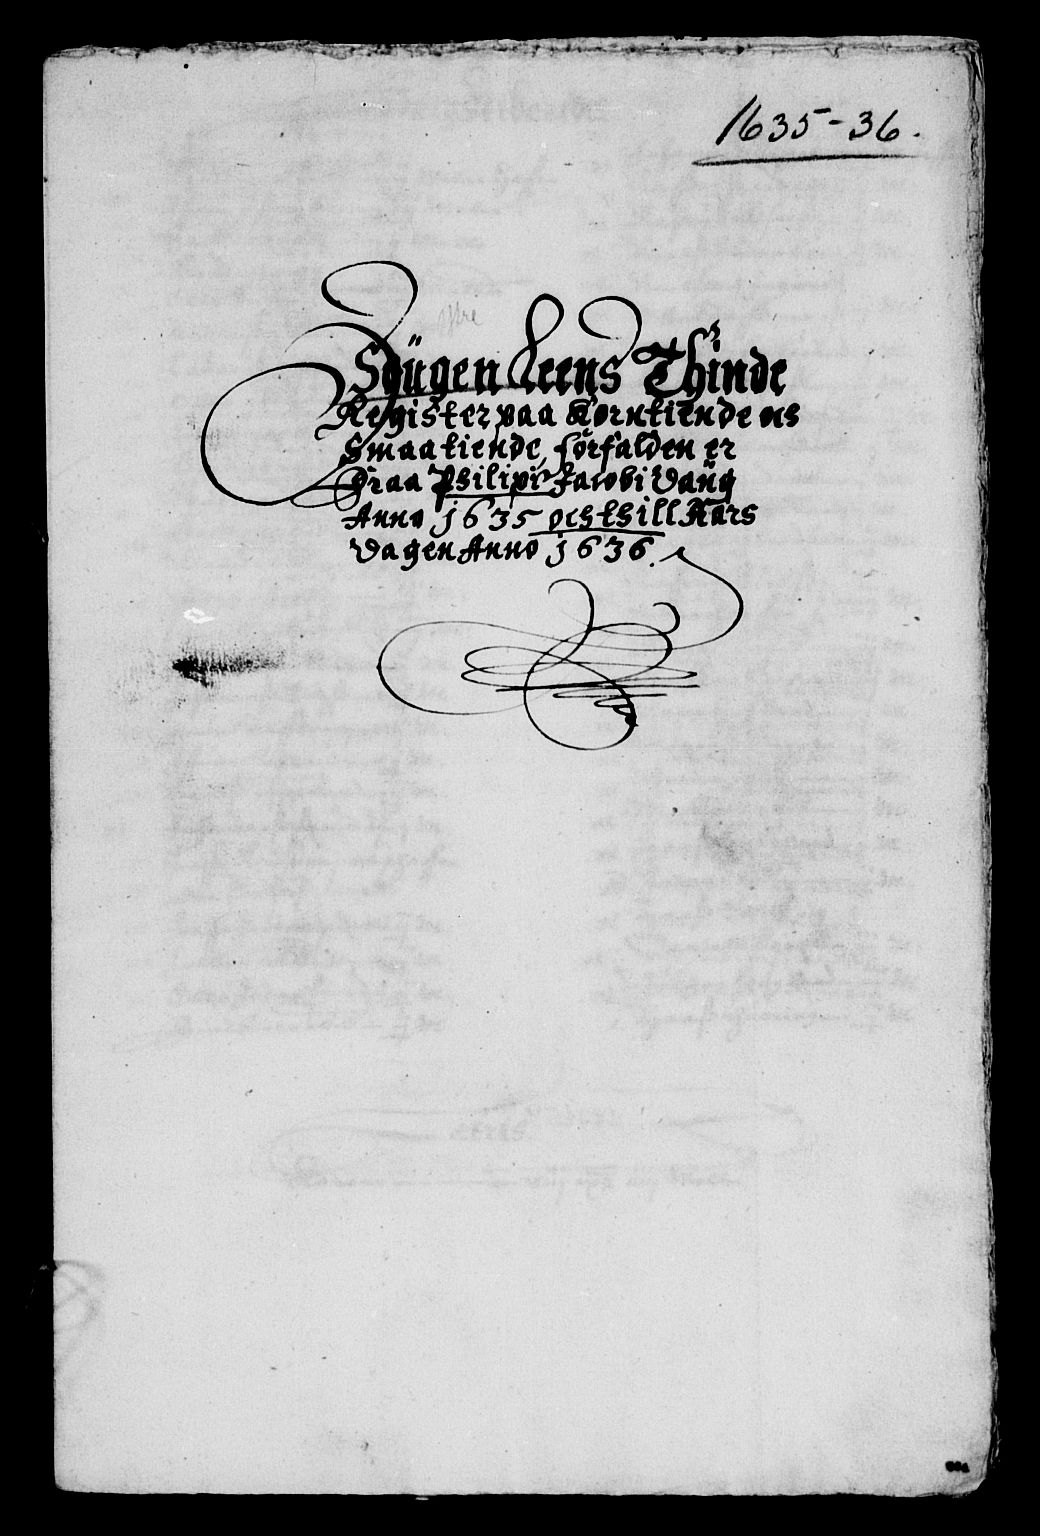 1635-36.
Sougen Leens Thinde
Register paa Korntiende och
Smaatiende, förfalden er
Fraa Philipi Jacobi Daug
Anno 1635 och thill Aars
Dagen Anno 1636.